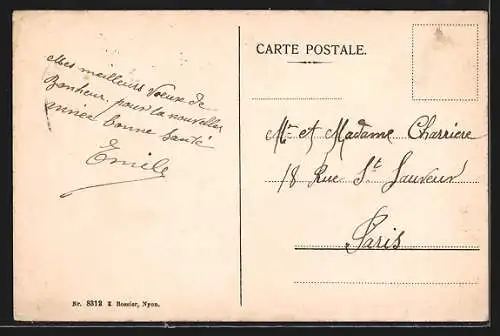 Mes meilleurs Voeux de
Bonheur. pour la nouvelle
année bonne Santé
Emile
Nr. 8312 E. Rossier, Nyon.
CARTE POSTALE.
Mr et Madame Charriere
18 Rue St Sauveur
Paris